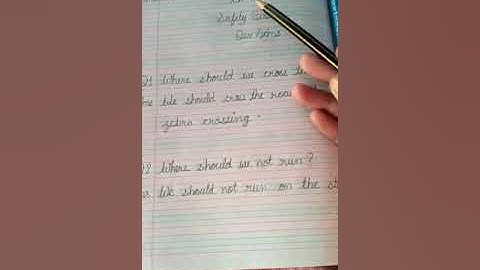 Safety
Questions
Q1 Where should we cross the
Ans We should cross the road
zebra crossing.
Q2 Where should we not run?
Ans We should not run on the